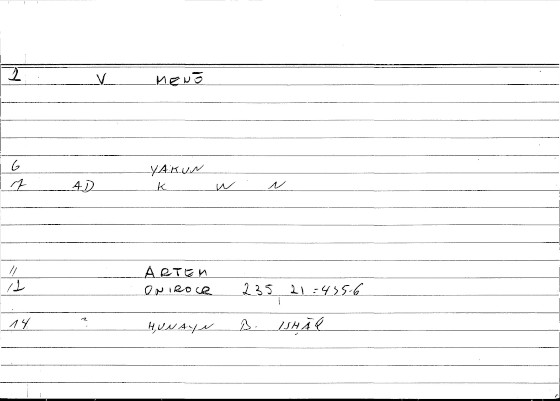 1 V MENŌ
6 YAKUN
7 AD K W N
11 ARTEM
12 ONIROCR 235, 21 = 455-6
14 " ḤUNAYN B. ISḤĀQ